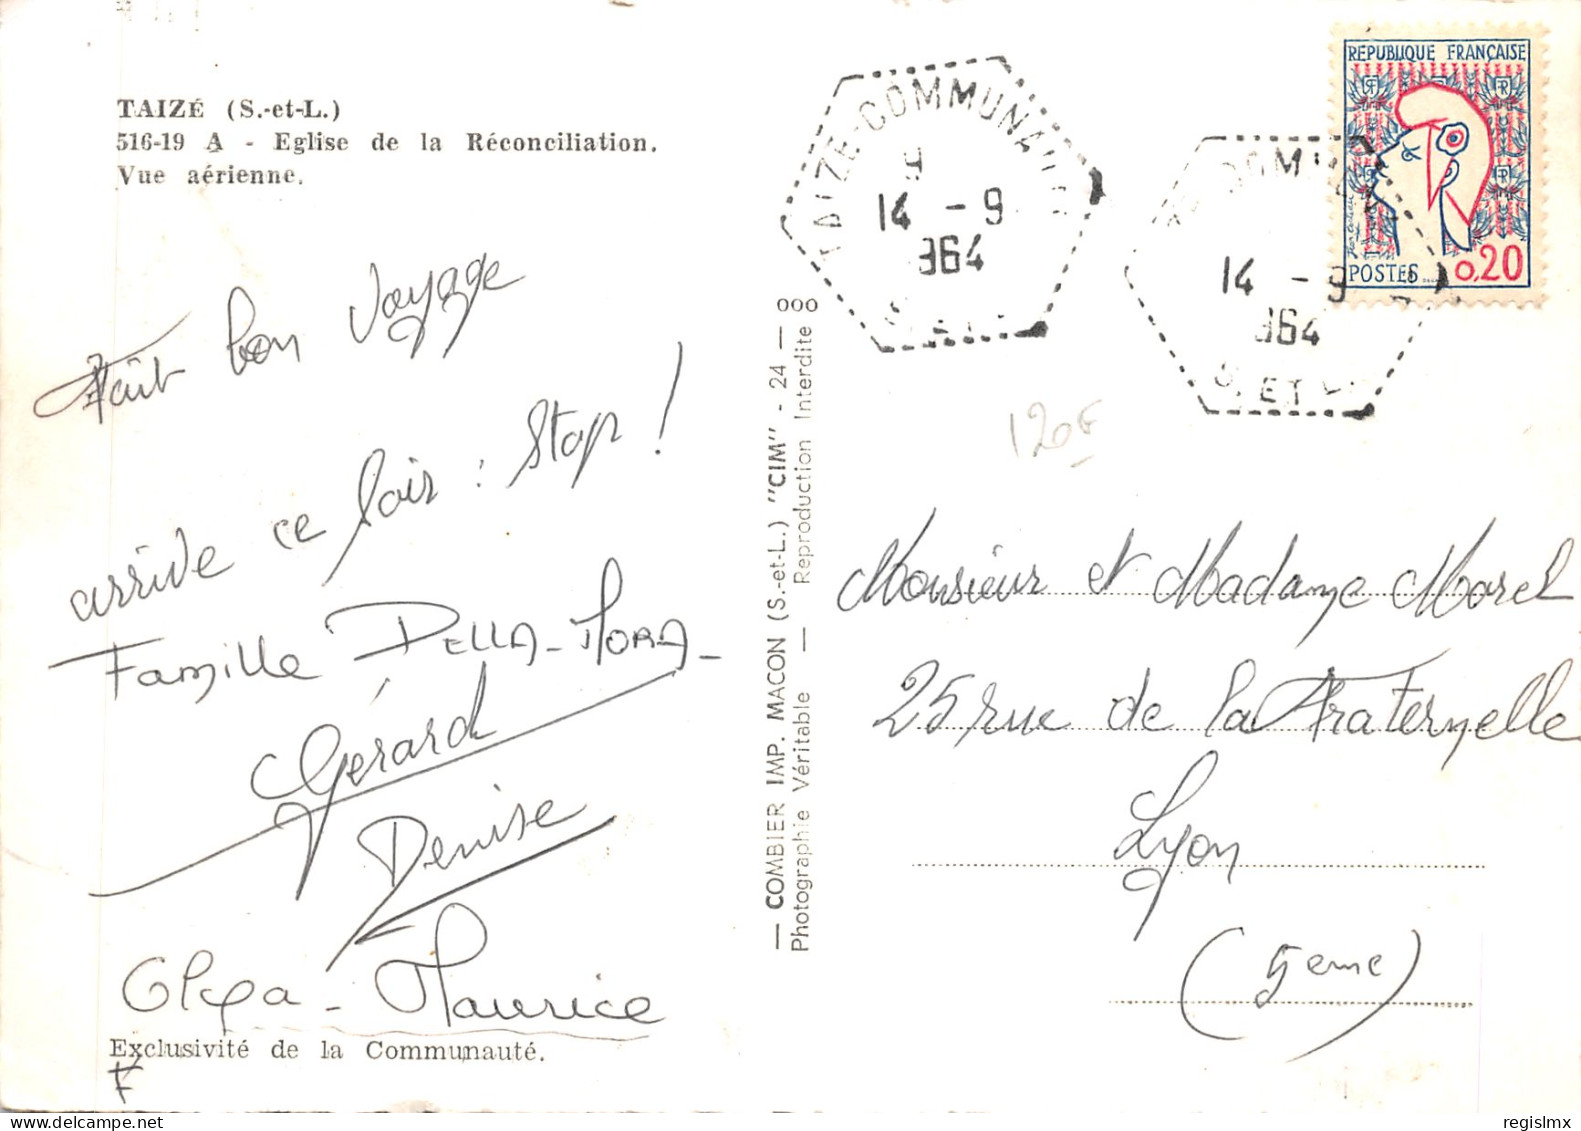 TAIZÉ (S.-et-L.)
516-19 A - Eglise de la Réconciliation.
Vue aérienne.
Fait bon voyage
arrive ce soir : Stop !
Famille DELLA-MORA -
Gérard
Denise
Olga - Maurice
Exclusivité de la Communauté.
— COMBIER IMP. MACON (S.-et-L.) "CIM" - 24 — 000
Photographie Véritable — Reproduction Interdite
TAIZE-COMMUNAUTE
9
14 - 9
964
14 - 9
964
S. ET L.
REPUBLIQUE FRANÇAISE
POSTES
0,20
120F
Monsieur et Madame Morel
25 rue de la Fraternelle
Lyon
(5eme)
regislmx